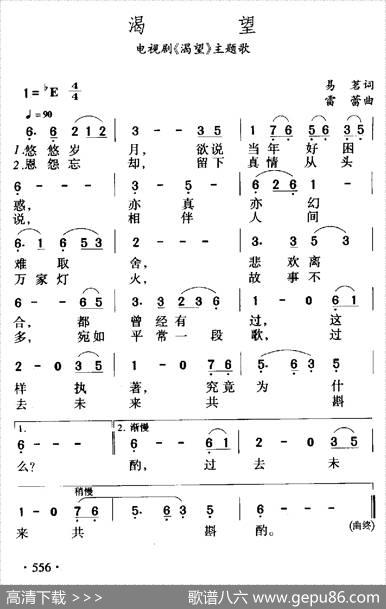 渴 望
电视剧《渴望》主题歌
易 茗词
雷 蕾曲
1=♭E 4/4
♩=90
6· 6 2 1 2 | 3 - - 5 6 | 1 7 6 5 6 3 5
1.悠悠岁 月， 欲说 当年好困
2.恩怨忘 却， 留下 真情从头
6 - - - | 3 - 5 - | 6 2 6 1 -
惑， 亦真 亦幻
说， 相伴 人间
6· 1 6 5 3 | 2 - - - | 3· 3 5 3
难取 舍， 悲欢离
万家灯 火， 故事不
6 - - 6 5 | 3· 3 2 3 6 | 1 - 0 6 1
合， 都 曾经有 过， 这
多， 宛如 平常一段 歌， 过
2 - 0 3 5 | 1 - 0 7 6 | 5· 6 3 5
样 执 著， 究竟 为 什
去 未 来 共 斟
1. 2. 渐慢
6 - - - | 6 - - 6 1 | 2 - 0 3 5
么？ 酌， 过 去 未
稍慢
1 - 0 7 6 | 5 - 3 5 | 6 - - -
来 共 斟 酌。
(曲终)
· 556 ·
高清下载 ／ 歌谱八六 www.gepu86.com